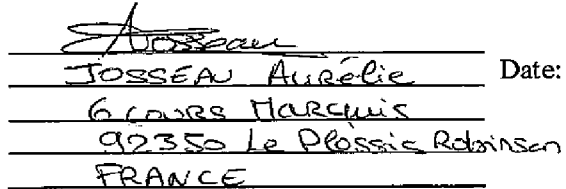 AJosseau
JOSSEAU Aurélie Date:
6 cours Marquis
92350 Le Plessis Robinson
FRANCE